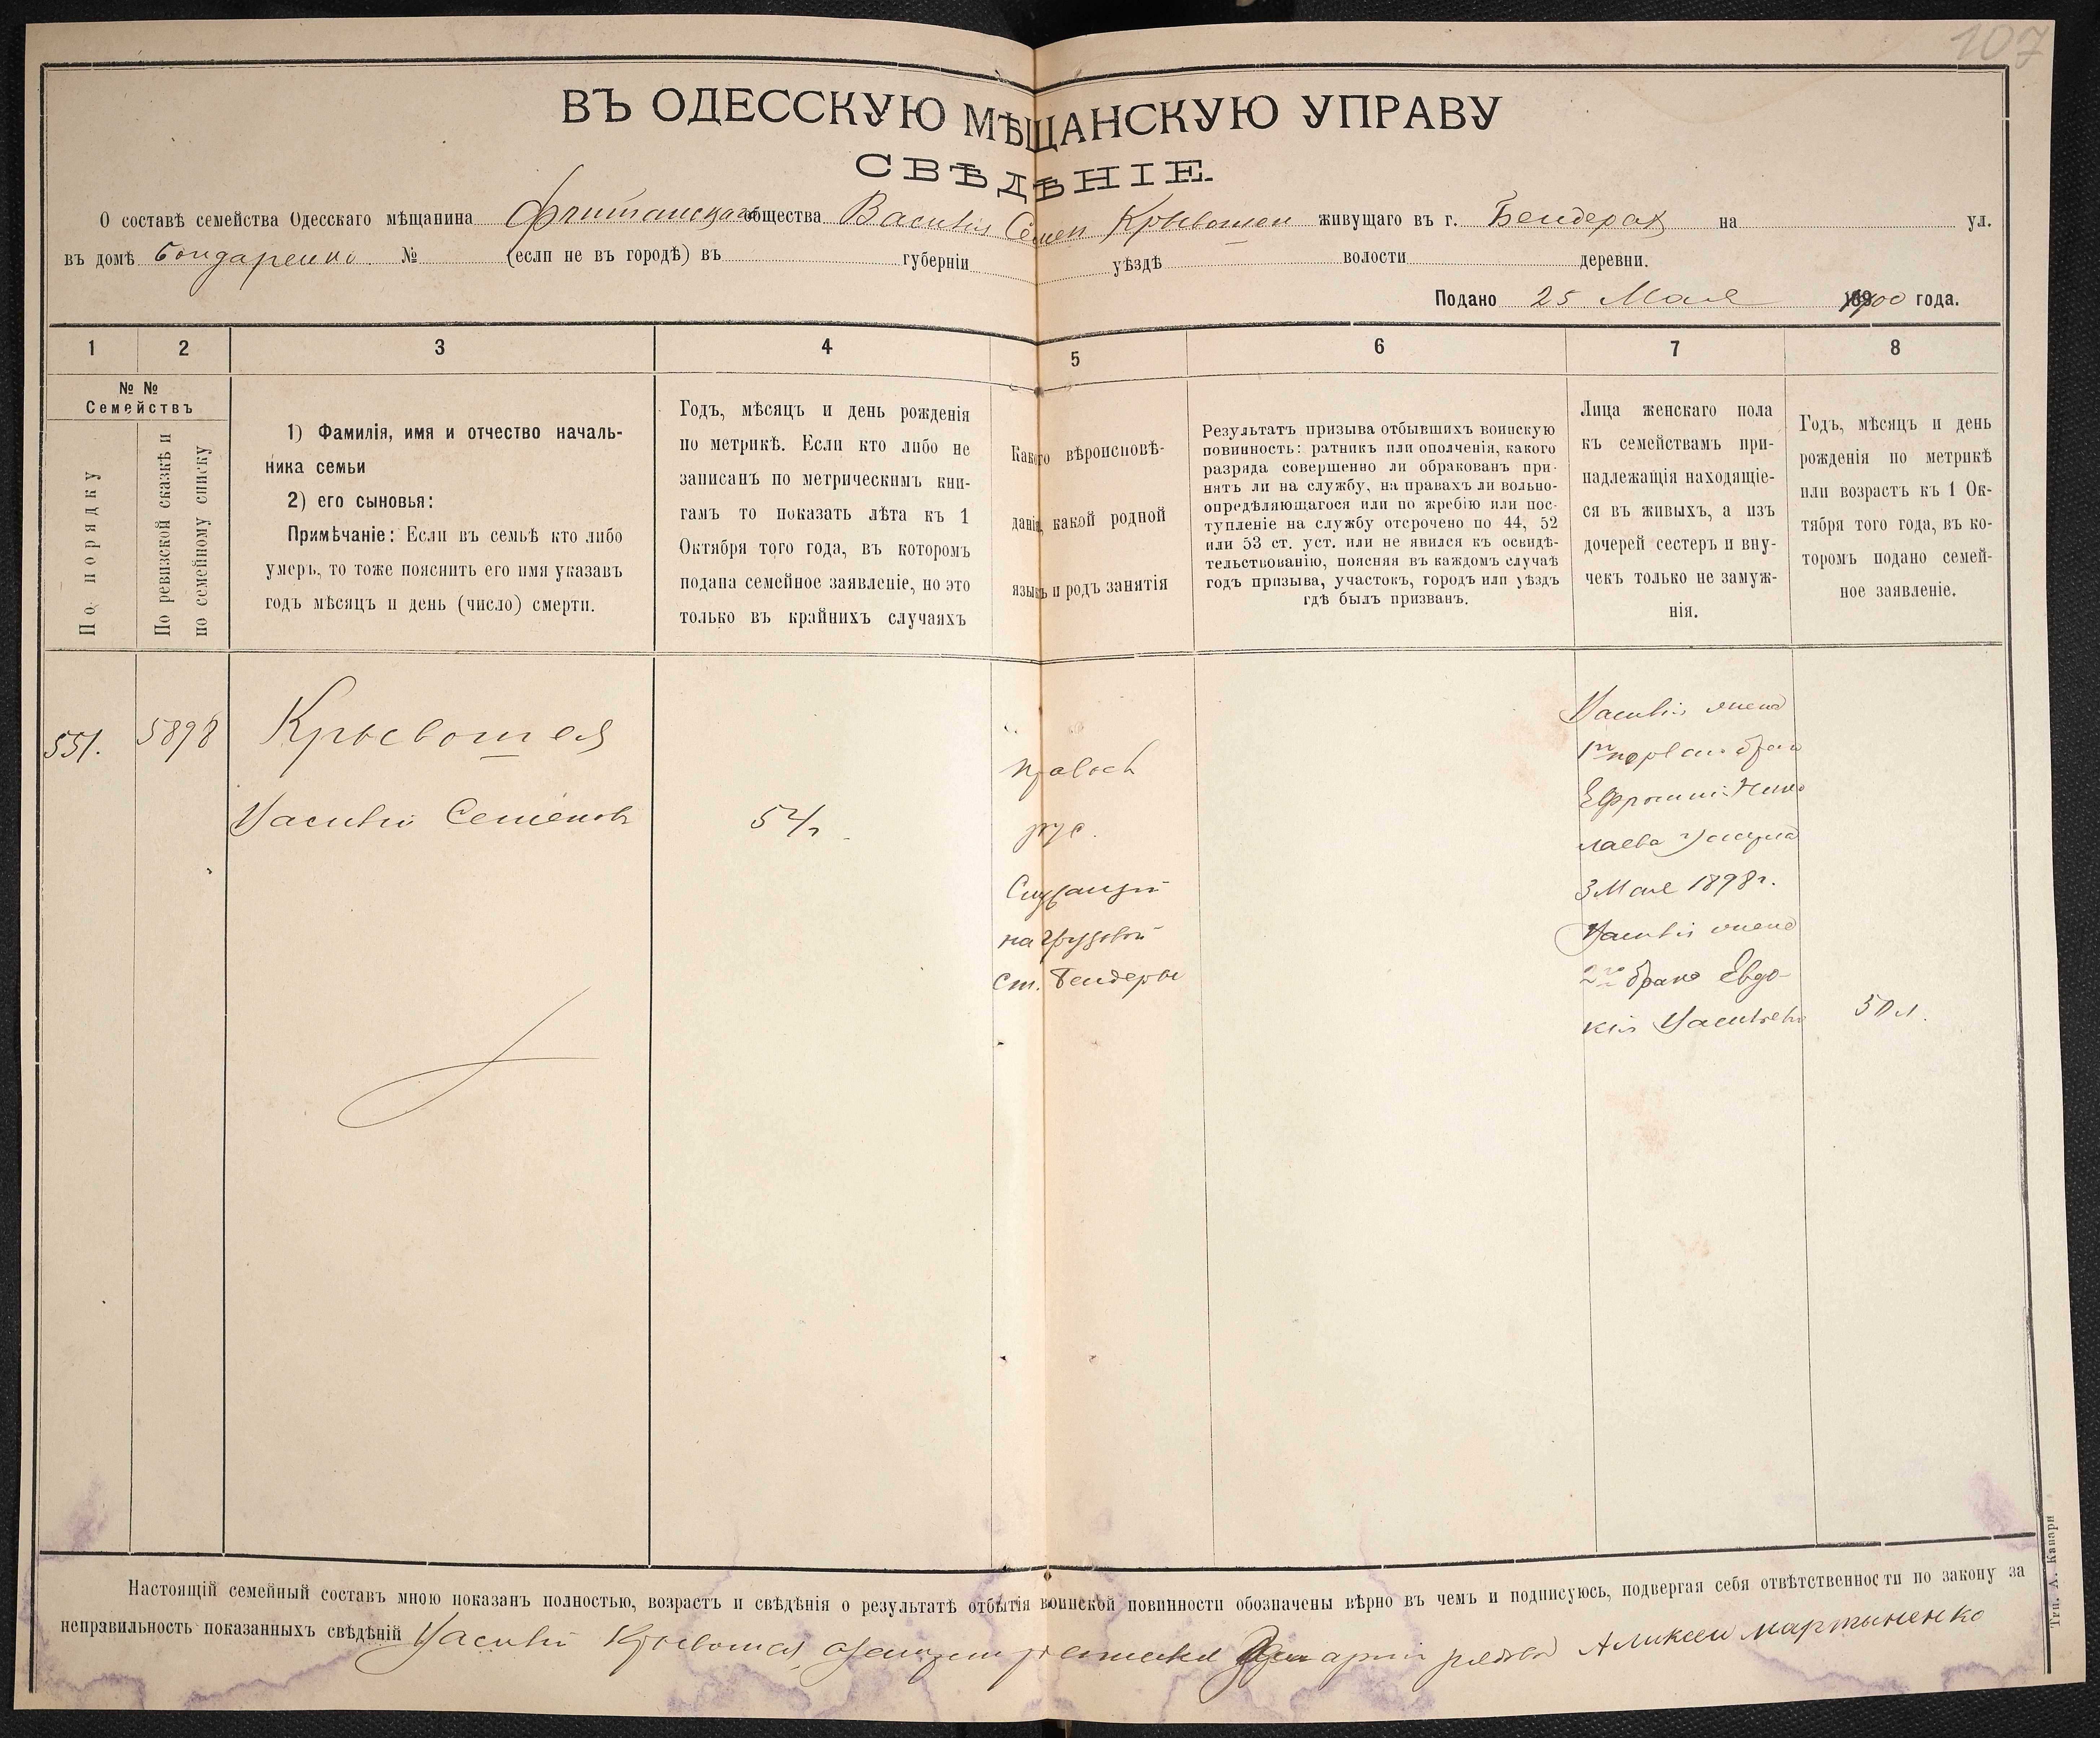 107
ВЪ ОДЕССКУЮ МѢЩАНСКУЮ УПРАВУ
СВѢДѢНІЕ.
О составѣ семейства Одесскаго мѣщанина общества Василія Семен Крывошеи живущаго въ г. Бендерах на ул.
въ домѣ Бондаренко № (если не въ городѣ) въ губерніи уѣздѣ волости деревни.
Подано 25 Мая 1900 года.
1 2 3 4 5 6 7 8
№ №
Семействъ
По порядку
По ревизской сказкѣ и
по семейному списку
1) Фамилія, имя и отчество началь-
ника семьи
2) его сыновья:
Примѣчаніе: Если въ семьѣ кто либо
умеръ, то тоже пояснить его имя указавъ
годъ мѣсяцъ и день (число) смерти.
Годъ, мѣсяцъ и день рожденія
по метрикѣ. Если кто либо не
записанъ по метрическимъ кни-
гамъ то показать лѣта къ 1
Октября того года, въ которомъ
подана семейное заявленіе, но это
только въ крайнихъ случаяхъ
Какого вѣроисповѣ-
данія, какой родной
языкъ и родъ занятія
Результатъ призыва отбывшихъ воинскую
повинность: ратникъ или ополченія, какого
разряда совершенно ли обракованъ при-
нятъ ли на службу, на правахъ ли вольно-
опредѣляющагося или по жребію или пос-
тупленіе на службу отсрочено по 44, 52
или 53 ст. уст. или не явился къ освидѣ-
тельствованію, поясняя въ каждомъ случаѣ
годъ призыва, участокъ, городъ или уѣздъ
гдѣ былъ призванъ.
Лица женскаго пола
къ семействамъ при-
надлежащія находящіе-
ся въ живыхъ, а изъ
дочерей сестеръ и вну-
чекъ только не замуж-
нія.
Годъ, мѣсяцъ и день
рожденія по метрикѣ
или возрастъ къ 1 Ок-
тября того года, въ ко-
торомъ подано семей-
ное заявленіе.
551. 5898 Крысвошея
Василій Семеновъ 54 г.
правосл
рус.
Служащій
на
ст. Бендеры
Василія жена
1го брака
Нико
лаева умерла
3 Мая 1898 г.
Василія жена
2го брака Евдо-
кія Васильева 50 л.
Настоящій семейный составъ мною показанъ полностью, возрастъ и свѣдѣнія о результатѣ отбытія воинской повинности обозначены вѣрно въ чемъ и подписуюсь, подвергая себя отвѣтственности по закону за
неправильность показанныхъ свѣдѣній Василій Крывошея рядовой Аликсеи мартыненко
Тип. А. Капари